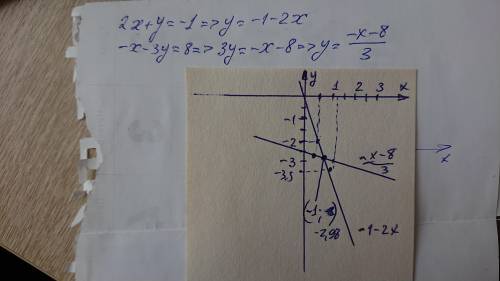 2x+y=-1=>y=-1-2x
-x-3y=8=>3y=-x-8=>y=\frac{-x-8}{3}
y
1 2 3 x
-1
-2
-3
-3,5
\frac{-x-8}{3}
x
-2,98
-1-2x